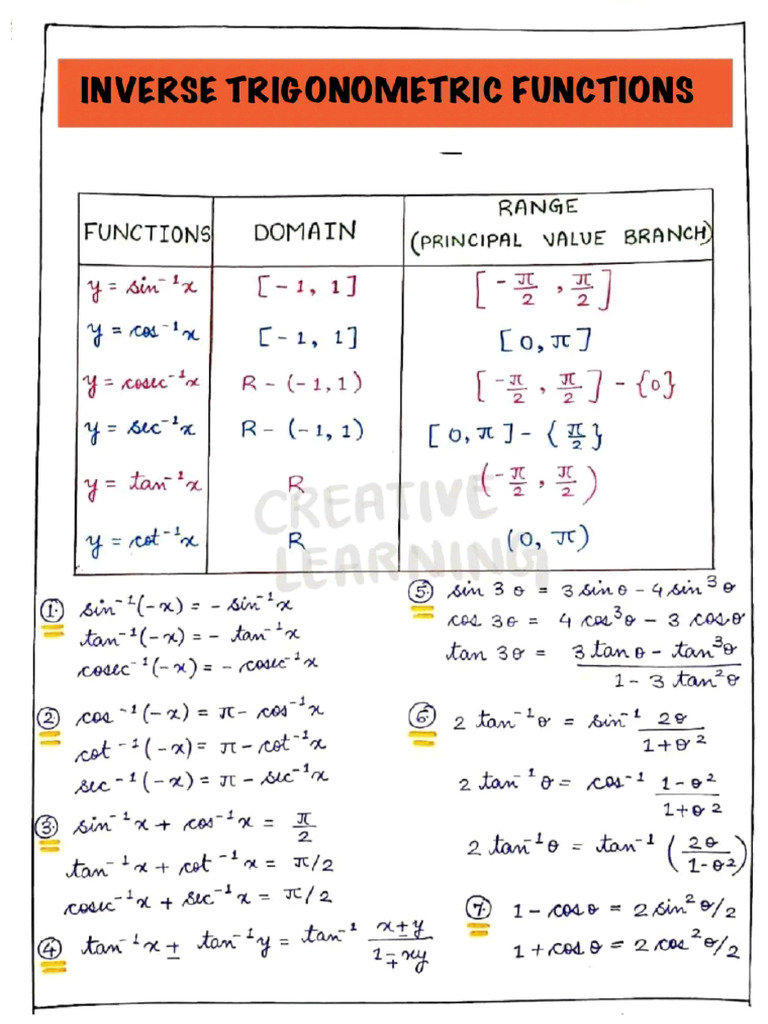 INVERSE TRIGONOMETRIC FUNCTIONS
FUNCTIONS DOMAIN RANGE (PRINCIPAL VALUE BRANCH)
y = sin⁻¹x [-1, 1] [-π/2, π/2]
y = cos⁻¹x [-1, 1] [0, π]
y = cosec⁻¹x R - (-1, 1) [-π/2, π/2] - {0}
y = sec⁻¹x R - (-1, 1) [0, π] - {π/2}
y = tan⁻¹x R (-π/2, π/2)
y = cot⁻¹x R (0, π)
CREATIVE
LEARNING
① sin⁻¹(-x) = - sin⁻¹x
tan⁻¹(-x) = - tan⁻¹x
cosec⁻¹(-x) = - cosec⁻¹x
② cos⁻¹(-x) = π - cos⁻¹x
cot⁻¹(-x) = π - cot⁻¹x
sec⁻¹(-x) = π - sec⁻¹x
③ sin⁻¹x + cos⁻¹x = π/2
tan⁻¹x + cot⁻¹x = π/2
cosec⁻¹x + sec⁻¹x = π/2
④ tan⁻¹x ± tan⁻¹y = tan⁻¹ (x ± y)/(1 ∓ xy)
⑤ sin 3θ = 3 sin θ - 4 sin³θ
cos 3θ = 4 cos³θ - 3 cos θ
tan 3θ = (3 tan θ - tan³θ)/(1 - 3 tan²θ)
⑥ 2 tan⁻¹θ = sin⁻¹ 2θ/(1 + θ²)
2 tan⁻¹θ = cos⁻¹ (1 - θ²)/(1 + θ²)
2 tan⁻¹θ = tan⁻¹ (2θ/(1 - θ²))
⑦ 1 - cos θ = 2 sin²θ/2
1 + cos θ = 2 cos²θ/2